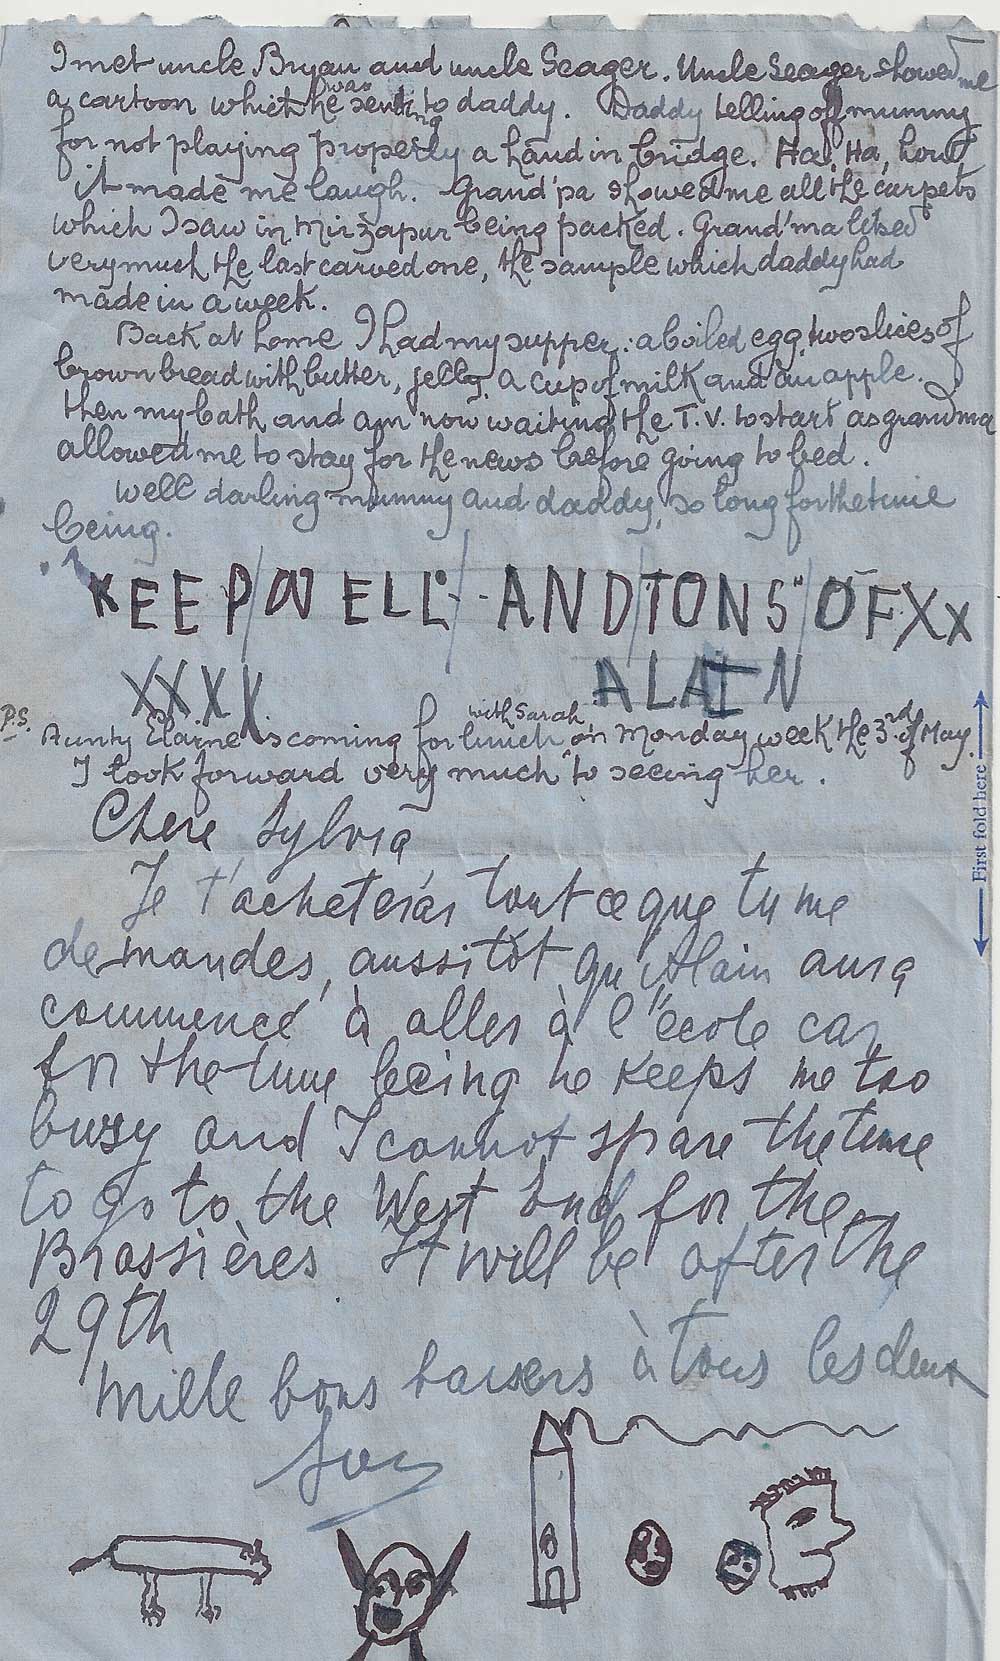 I met uncle Bryan and uncle Seager. Uncle Seager showed me
a cartoon which he was sending to daddy. Daddy telling off mummy
for not playing properly a hand in bridge. Ha, Ha, how
it made me laugh. Grand'pa showed me all the carpets
which I saw in Mirzapur being packed. Grand'ma liked
very much the last carved one, the sample which daddy had
made in a week.
Back at home I had my supper: a boiled egg, two slices of
brown bread with butter, jelly, a cup of milk and an apple.
then my bath and am now waiting the T.V. to start as grandma
allowed me to stay for the news before going to bed.
Well darling mummy and daddy, so long for the time
being.
KEEP WELL AND TONS OF XX
XXXX ALAIN
P.S. Aunty Elaine is coming for lunch with Sarah on Monday week the 3rd of May.
I look forward very much to seeing her.
Chere Sylvia
Je t'acheterai tout ce que tu me
demandes, aussitôt qu'Alain aura
commencé à aller à l'école car
for the time being he keeps me too
busy and I cannot spare the time
to go to the West End for the
Brassières It will be after the
29th
Mille bons baisers à tous les deux
First fold here